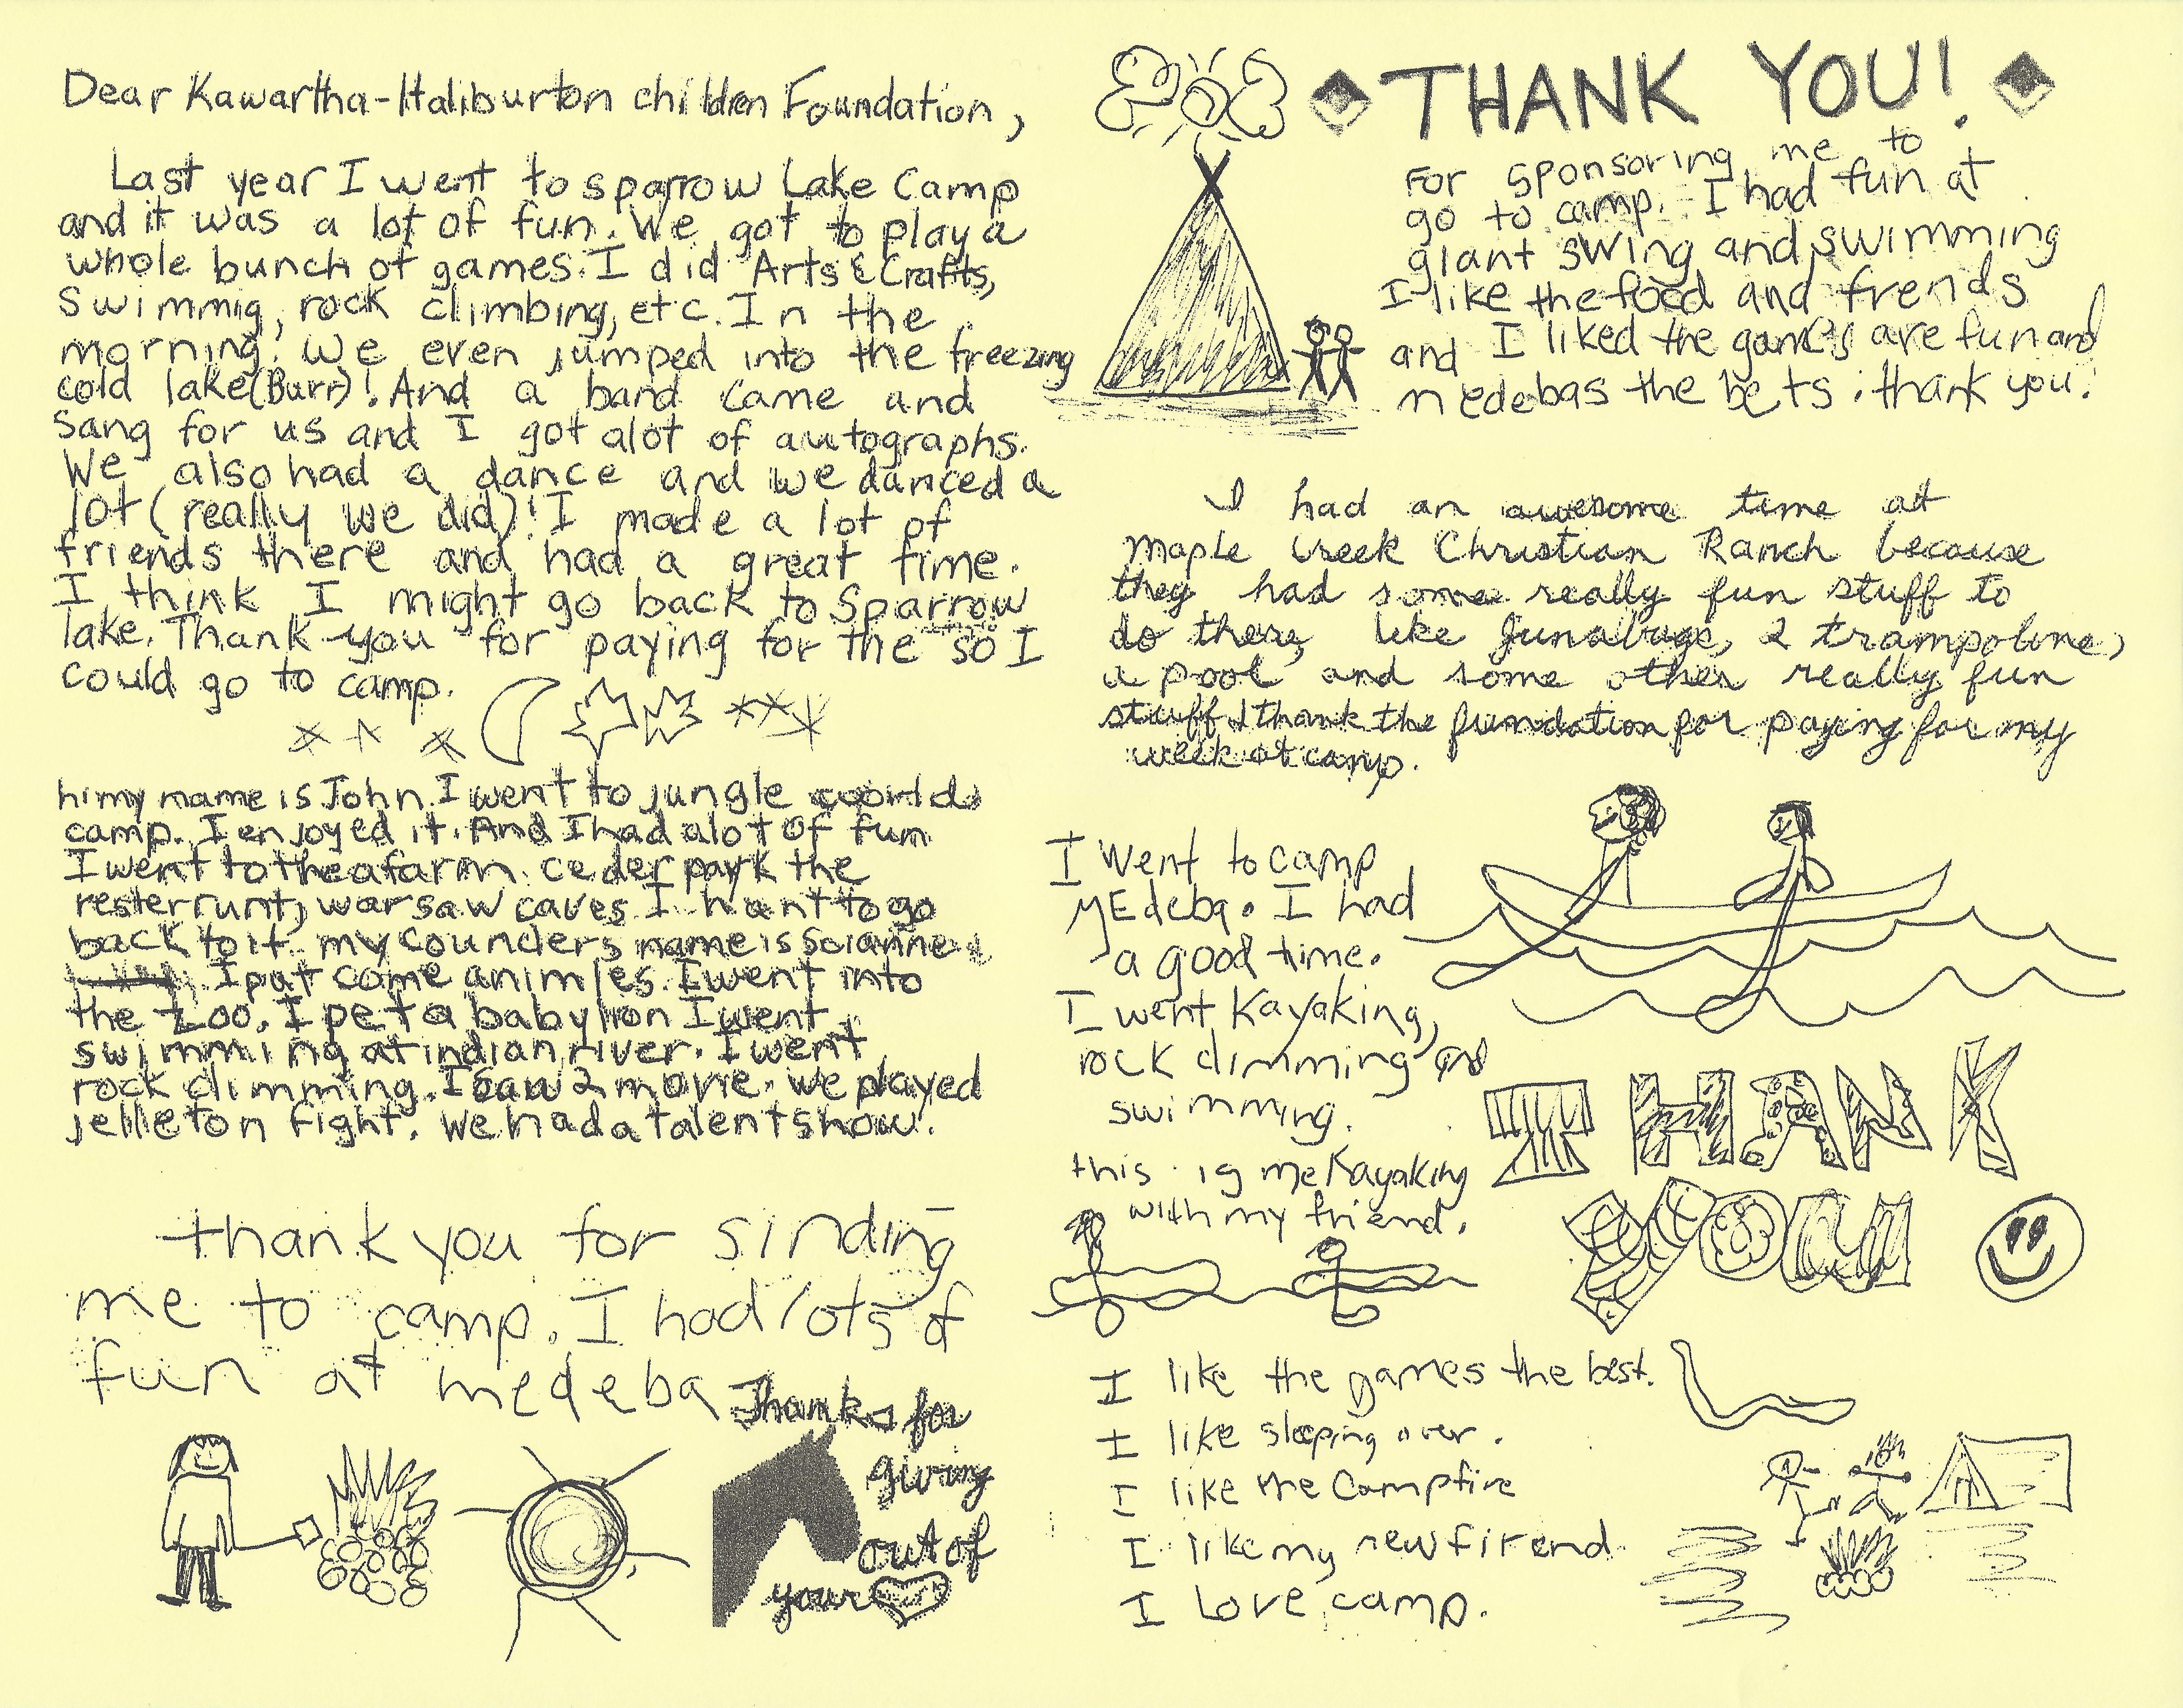 Dear Kawartha-Haliburton children Foundation,
Last year I went to sparrow Lake Camp
and it was a lot of fun. We got to play a
whole bunch of games. I did Arts & Crafts,
Swimmig, rock climbing, etc. In the
morning. We even jumped into the freezing
cold lake (Burr)! And a band came and
Sang for us and I got alot of autographs.
We also had a dance and we danced a
lot (really we did)! I made a lot of
friends there and had a great time.
I think I might go back to Sparrow
lake. Thank-you for paying for the so I
could go to camp.
hi my name is John. I went to jungle world
camp. I enjoyed it. And I had alot of fun
I went to thea farm. ceder park the
resterrunt, warsaw caves. I want to go
back to it. my counders name is
I pat come animles. I went into
the zoo. I pet a baby lion I went
swimming at indian river. I went
rock climming. I saw 2 movie. we played
jelleton fight. We had a talent show.
thank you for sinding
me to camp. I had lots of
fun at medeba
Thanks for
giving
out of
your
THANK YOU!
For sponsoring me to
go to camp. I had fun at
giant swing and swimming
I like the food and frends
and I liked the games are fun and
medebas the bets. thank you.
I had an awesome time at
Maple Creek Christian Ranch because
they had some really fun stuff to
do there, like 2 trampoline,
a pool and some other really fun
stuff. I thank the fundation for paying for my
week at camp.
I went to camp
MEdeba. I had
a good time.
I went Kayaking,
rock climming and
swimming.
this is me Kayaking
with my friend.
THANK
YOU
I like the games the best.
I like sleeping over.
I like the Campfire
I like my new firend
I Love camp.